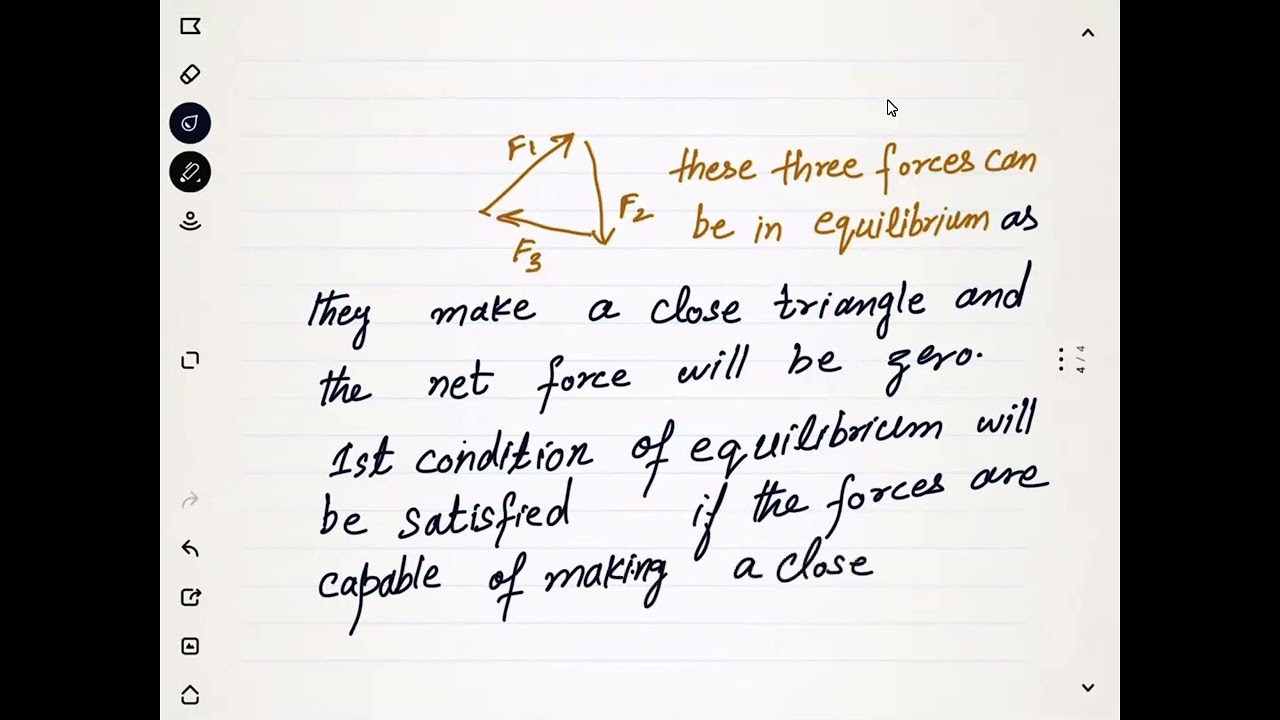 F1
these three forces can
F2
be in equilibrium as
F3
they make a close triangle and
the net force will be zero.
4 / 4
1st condition of equilibrium will
be satisfied if the forces are
capable of making a close